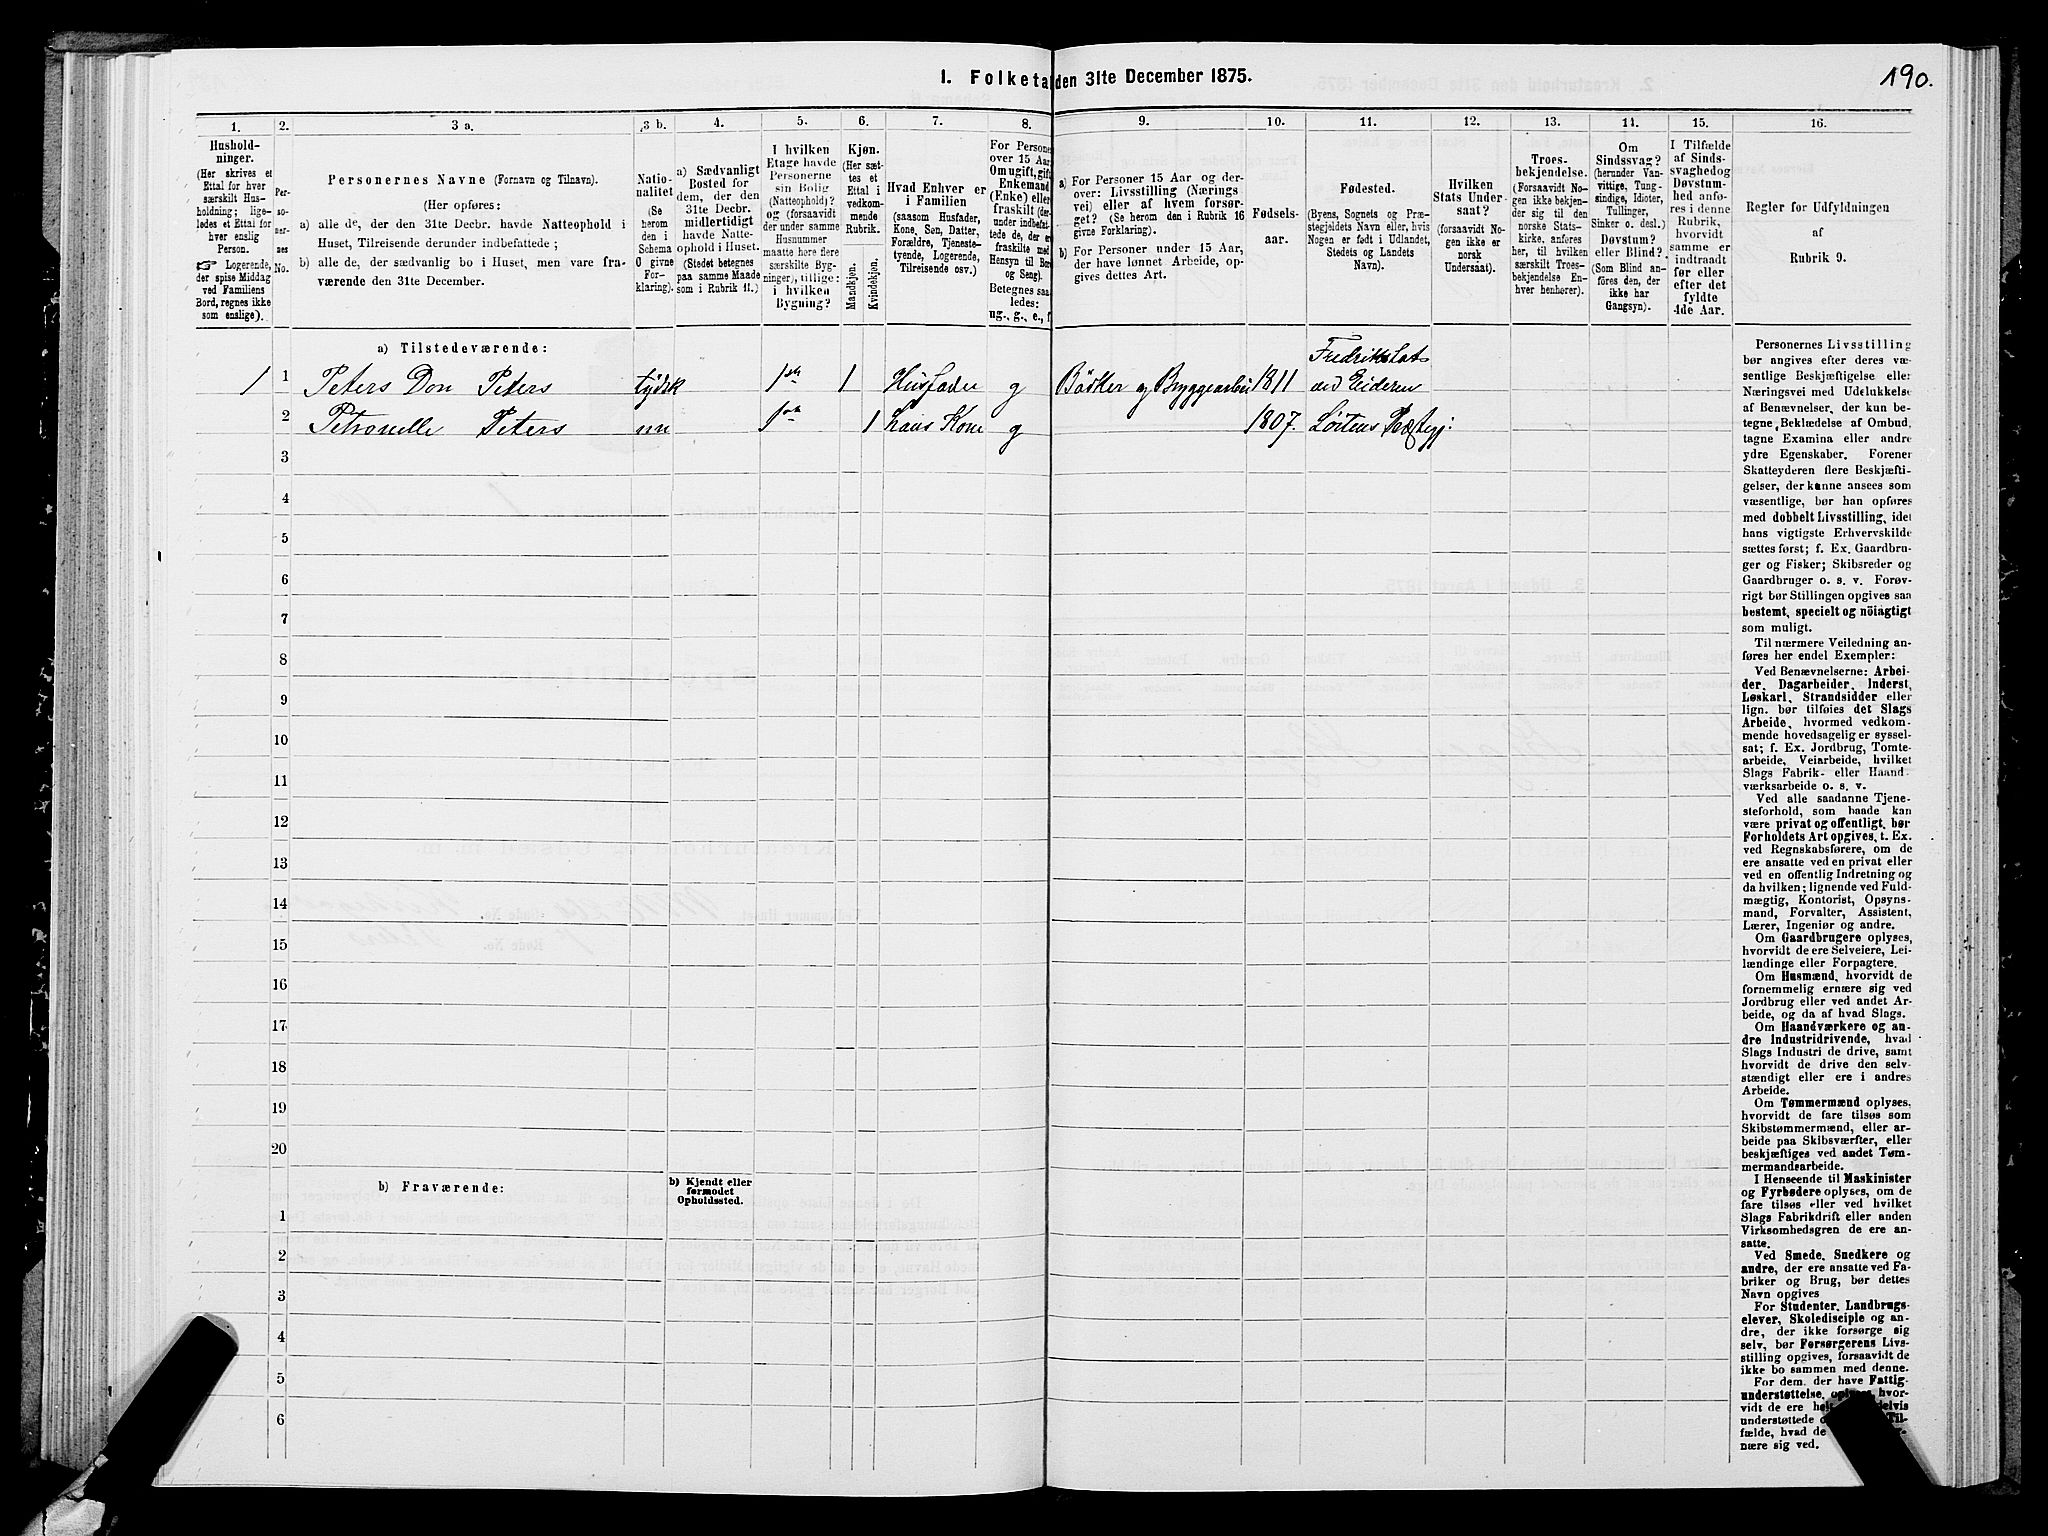 1. Folketa den 31te December 1875.
190.
1.
2.
3 a.
3 b.
4.
5.
6.
7.
8.
9.
10.
11.
12.
13.
14.
15.
16.
Hushold-
ninger.
(Her skrives et
Ettal for hver
særskilt Hus-
holdning; lige-
ledes et Ettal for
hver enslig
Person.
☞ Logerende,
der spise Middag
ved Familiens
Bord, regnes ikke
som enslige).
Per-
so-
ner-
nes
No.
Personernes Navne (Fornavn og Tilnavn).
(Her opføres:
a) alle de, der den 31te Decbr. havde Natteophold i
Huset, Tilreisende derunder indbefattede;
b) alle de, der sædvanlig bo i Huset, men vare fra-
værende den 31te December.
Natio-
nalitet
(Se
herom
den i
Schema
O givne
For-
klaring).
a) Sædvanligt
Bosted for
dem, der den
31te Decbr.
midlertidigt
havde Natte-
ophold i Huset.
(Stedet betegnes
paa samme Maade
som i Rubrik 11.)
I hvilken
Etage havde
Personerne
sin Bolig
(Natteophold)?
og (forsaavidt
der under samme
Husnummer
maatte høre flere
særskilte Byg-
ninger), tillige:
i hvilken
Bygning?
Kjøn.
(Her sæt-
tes et
Ettal i
vedkom-
mende
Rubrik.
Mandkjøn.
Kvindekjøn.
Hvad Enhver er
i Familien
(saasom Husfader,
Kone, Søn, Datter,
Forældre, Tjeneste-
tyende, Logerende,
Tilreisende osv.)
For Persone
over 15 Aar
Om ugift, gift
Enkemand
(Enke) eller
fraskilt (der-
under indbefat-
tede de, der er
fraskilte med
Hensyn til Bor
og Seng).
Betegnes saa
ledes:
ug., g., e., f.
a) For Personer 15 Aar og der-
over: Livsstilling (Nærings
vei) eller af hvem forsør-
get? (Se herom den i Rubrik 16
givne Forklaring).
b) For Personer under 15 Aar,
der have lønnet Arbeide, op-
gives dettes Art.
Fødsels-
aar.
Fødested.
(Byens, Sognets og Præ-
stegjeldets Navn eller, hvis
Nogen er født i Udlandet,
Stedets og Landets
Navn).
Hvilken
Stats Under-
saat?
(forsaavidt No-
gen ikke er
norsk
Undersaat).
Troes-
bekjendelse.
(Forsaavidt No-
gen ikke bekjen-
der sig til den
norske Stats-
kirke, anføres
her, til hvilken
særskilt Troes-
bekjendelse En-
hver henhører).
Om
Sindssvag?
(herunder Van-
vittige, Tung-
sindige, Idioter,
Tullinger,
Sinker o. desl.)
Døvstum?
eller Blind?
(Som Blind an-
føres den, der
ikke har
Gangsyn).
I Tilfælde
af Sinds-
svaghedog
Døvstum-
hed anfø-
res i denne
Rubrik,
hvorvidt
samme er
indtraadt
før eller
efter det
fyldte
4de Aar.
Regler for Udfyldningen
af
Rubrik 9.
a) Tilstedeværende:
Fredrikstat
1 1 Peters Don Peters tydsk 1ste 1 Husfader g Bödker og Bryggearbei 1811 ved Eideren
2 Petronelle Peters nn 1ste 1 hans Kone g 1807. Löitens Præstegj:
3
4
5
6
7
8
9
10
11
12
13
14
15
16
17
18
19
20
b) Fraværende:
b) Kjendt eller
formodet
Opholdssted.
1
2
3
4
5
6
Personernes Livsstilling
bør angives efter deres væ-
sentlige Beskjæftigelse eller
Næringsvei med Udelukkelse
af Benævnelser, der kun be-
tegne Beklædelse af Ombud,
tagne Examina eller andre
ydre Egenskaber. Forener
Skatteyderen flere Beskjæfti-
gelser, der kunne ansees som
væsentlige, bør han opføres
med dobbelt Livsstilling, idet
hans vigtigste Erhvervskilde
sættes først; f. Ex. Gaardbru-
ger og Fisker; Skibsreder og
Gaardbruger o. s. v. Forøv-
rigt bør Stillingen opgives saa
bestemt, specielt og nöiagtigt
som muligt.
Til nærmere Veiledning an-
føres her endel Exempler:
Ved Benævnelserne: Arbei-
der, Dagarbeider, Inderst,
Løskarl, Strandsidder eller
lign. bør tilføies det Slags
Arbeide, hvormed vedkom-
mende hovedsagelig er syssel-
sat; f. Ex. Jordbrug, Tomte-
arbeide, Veiarbeide, hvilket
Slags Fabrik- eller Haand-
værksarbeide o. s. v.
Ved alle saadanne Tjene-
steforhold, som baade kan
være privat og offentligt, bør
Forholdets Art opgives, t. Ex.
ved Regnskabsførere, om de
ere ansatte ved en privat eller
ved en offentlig Indretning og
da hvilken; lignende ved Fuld-
mægtig, Kontorist, Opsyns-
mand, Forvalter, Assistent,
Lærer, Ingeniør og andre.
Om Gaardbrugere oplyses,
hvorvidt de ere Selveiere, Lei-
lændinge eller Forpagtere.
Om Husmænd, hvorvidt de
fornemmelig ernære sig ved
Jordbrug eller ved andet Ar-
beide, og da af hvad Slags.
Om Haandværkere og an-
dre Industridrivende, hvad
Slags Industri de drive, samt
hvorvidt de drive den selv-
stændigt eller ere i andres
Arbeide.
Om Tømmermænd oplyses,
hvorvidt de fare tilsøs som
Skibstømmermænd, eller ar-
beide paa Skibsværfter, eller
beskjæftiges ved andet Tøm-
mermandsarbeide.
I Henseende til Maskinister
og Fyrbødere oplyses, om de
fare tilsøs eller ved hvilket
Slags Fabrikdrift eller anden
Virksomhedsgren de ere an-
satte.
Ved Smede, Snedkere og
andre, der ere ansatte ved Fa-
briker og Brug, bør dettes
Navn opgives
For Studenter, Landbrugs-
elever, Skoledisciple og an-
dre, der ikke forsørge sig
selv, bør Forsørgerens Livs-
stilling opgives, forsaavidt de
ikke bo sammen med denne.
For dem, der have Fattig-
understøttelse, oplyses hvor-
vidt de ere helt delvis
understøttede Til-
fælde, hvad de
nære sig ved.